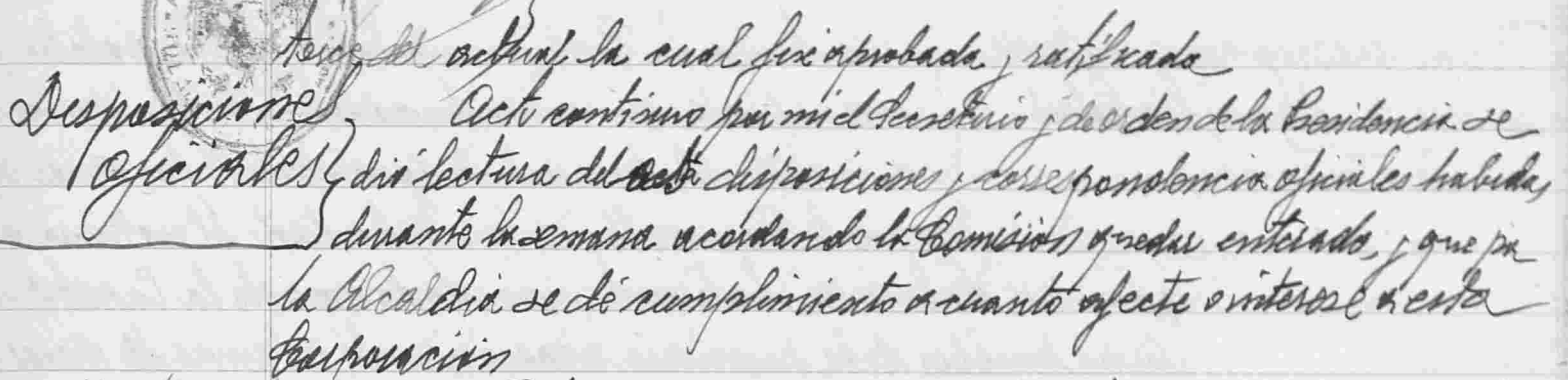 trece del actual la cual fue aprobada y ratificada
Disposiciones Acto continuo por mi el Secretario y de orden de la Presidencia se
oficiales dió lectura del acta disposiciones y correspondencia oficiales habidas
durante la semana acordando la Comisión quedar enterada, y que por
la Alcaldia se dé cumplimiento a cuanto afecte o interese a esta
Corporación